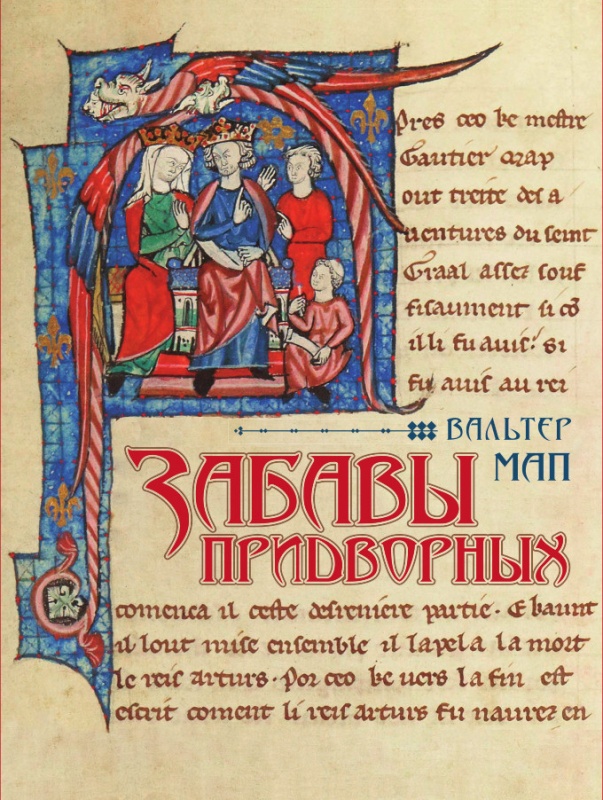 Apres ceo ke mestre
Gautier map
out treite des a
uentures du seint
Graal assez souf
fisaument si cõ
il li fu auis. si
fu auis au rei
ВАЛЬТЕР
МАП
ЗАБАВЫ
ПРИДВОРНЫХ
comenca il ceste desreniere partie. E kaunt
il lout mise ensemble il lapela la mort
le reis arturs. Por ceo ke uers la fin est
escrit coment li reis arturs fu naurez en